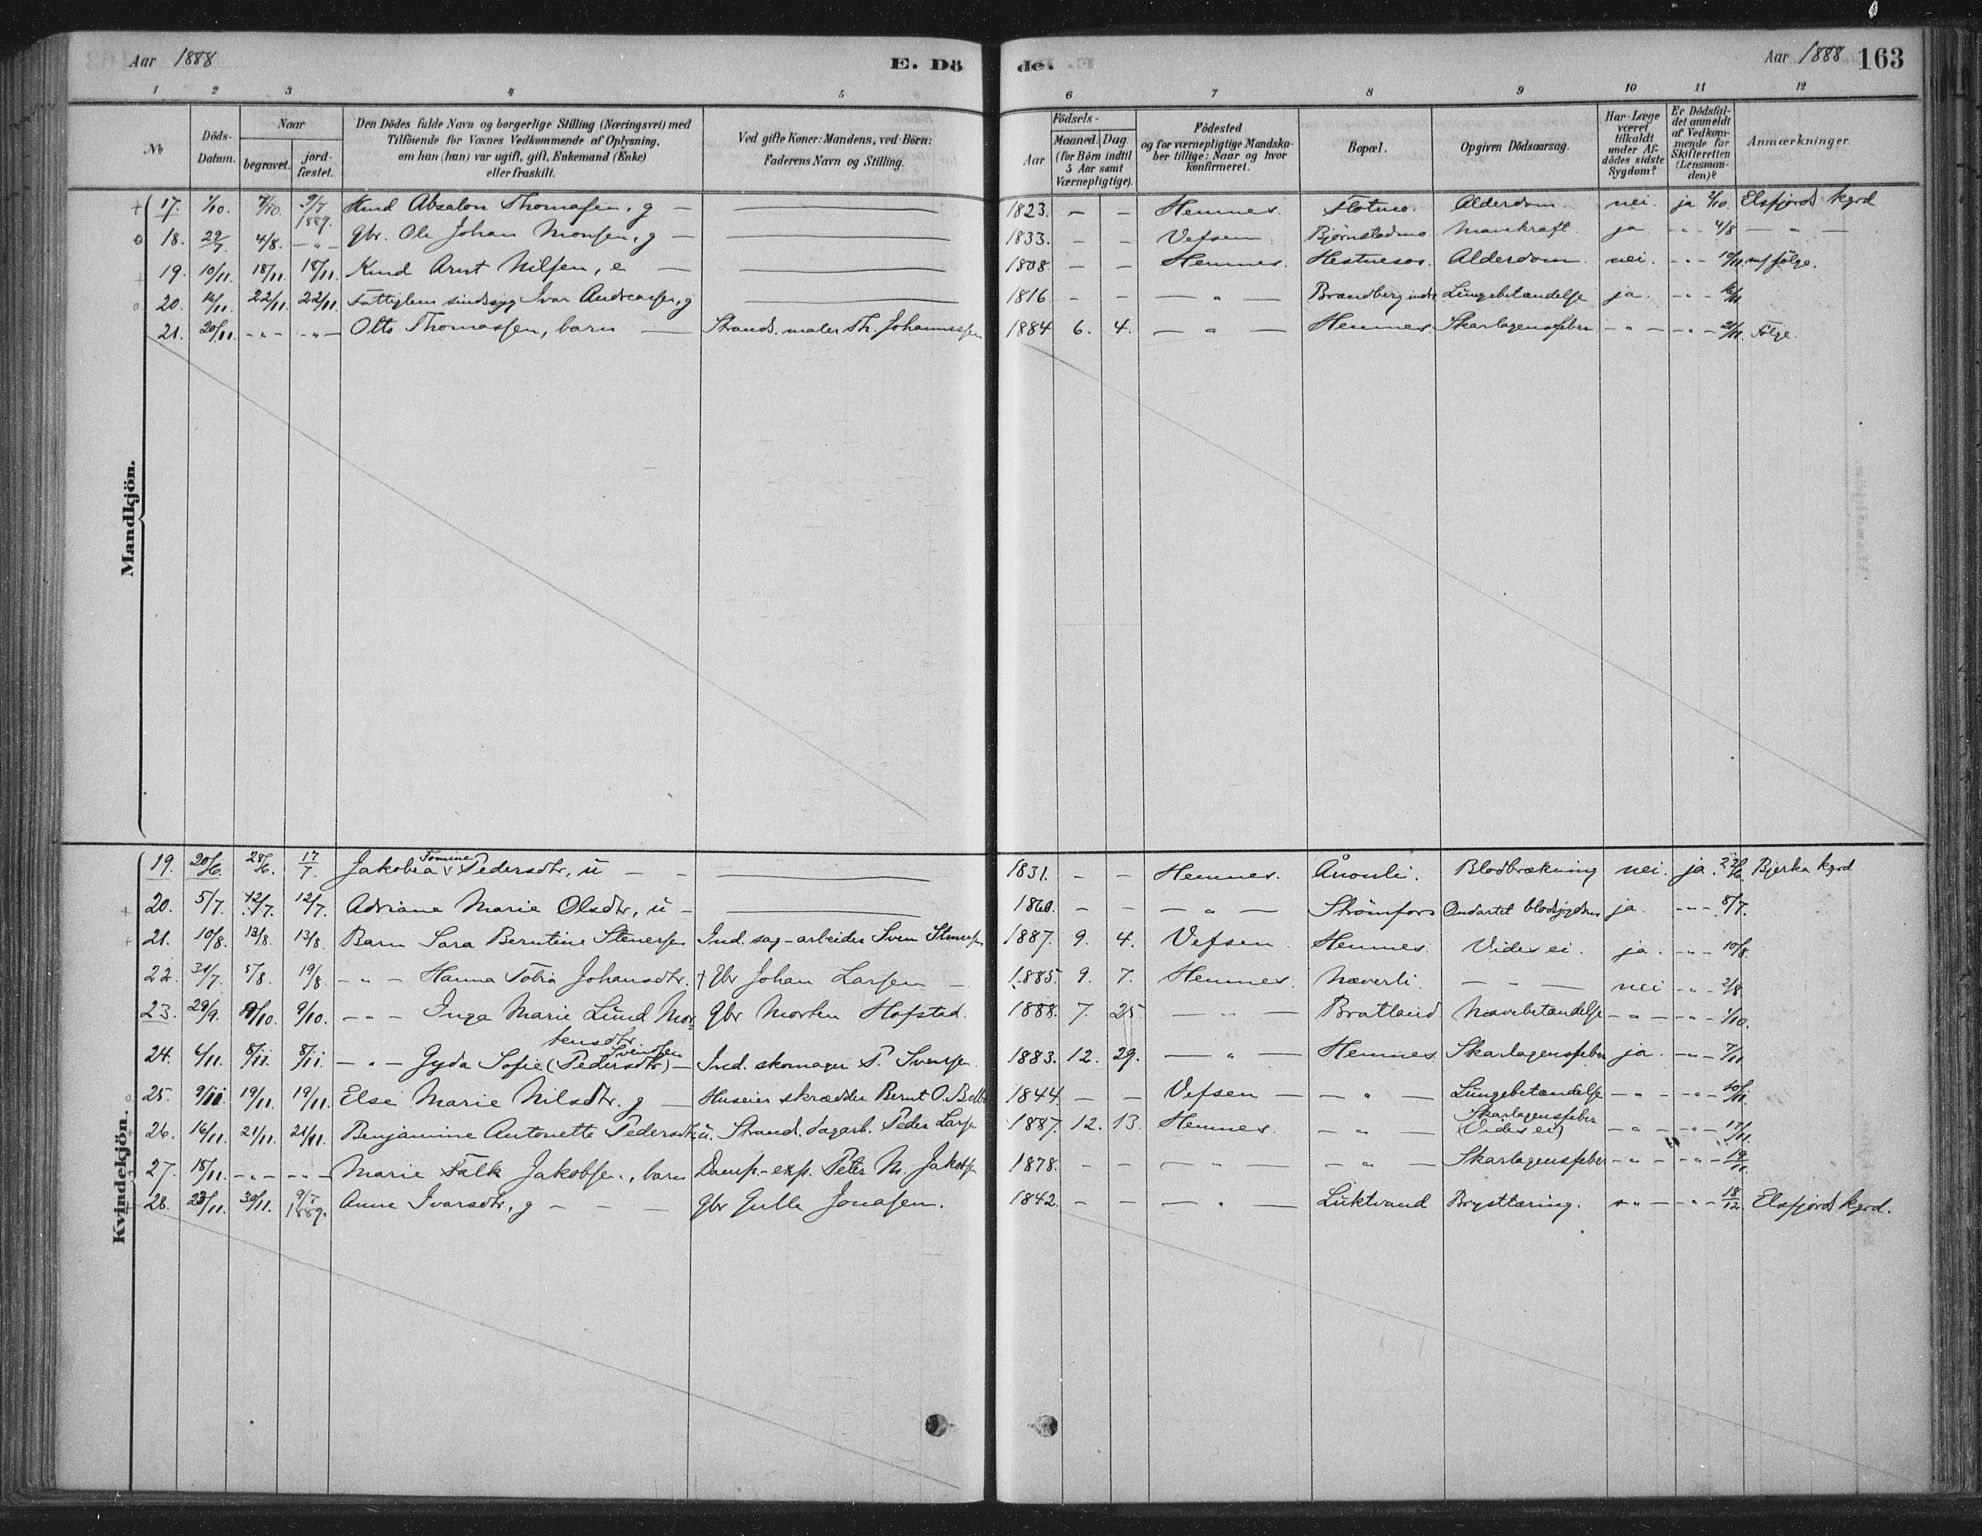 Aar 1888
E. Dö
de.
Aar 1888
163
1 2 3 4 5 6 7 8 9 10 11 12
No
Döds-Datum.
Naar
begravet.
jordfæstet.
Den Dödes fulde Navn og borgerlige Stilling (Næringsvei) med
Tilföiende for Voxnes Vedkommende af Oplysning,
om han (hun) var ugift, gift, Enkemand (Enke)
eller fraskilt.
Ved gifte Koner: Mandens, ved Börn:
Faderens Navn og Stilling.
Födsels-
Aar
Maaned. Dag
(for Börn indtil
5 Aar samt
Værnepligtige).
Födested
og for værnepligtige Mandska-
ber tillige: Naar og hvor
konfirmeret.
Bopæl.
Opgiven Dödsaarsag.
Har Læge
været
tilkaldt
under Af-
dödes sidste
Sygdom?
Er Dödsfal-
det anmeldt
af Vedkom-
mende for
Skifteretten
(Lensman-
den)?
Anmærkninger.
Mandkjön.
17. 1/10. 7/10. 9/7 1889. Absalon Thomasen, g — 1823. — — Hemnes. Alderdom nei. ja 2/10. Elsfjords kgrd
18. 29/7 4/8. — " — Gbr. Ole Johan Monsen, g — 1833. — — Vefsen. Bjørnstadmo Mavekræft ja — " — 4/8 — " —
19. 10/11. 18/11 18/11. Arnt Nilsen, e — 1808 — — Hemnes. Alderdom. nei. — " — følge.
20. 14/11 22/11. 22/11. Fattiglem sindssyg Ivar Andreassen, g 1816 — — — " — Brandberg indre Lungebetændelse ja. — " —
21. 20/11. — " — — " — Otto Thomassen, barn — Strands. maler Th. Johannessen 1884 6. 4. — " — Hemnes. Skarlagensfeber — " — — " — 21/11. Følge.
Kvindekjön.
19. 20/6. 28/6. 17/7. Jakobea Tomine Pedersdtr, u — — 1831. — — Hemnes. Ånonli. Blodbrækning nei. ja. Bjerka kgrd
20. 5/7. 12/7. 12/7. Adriane Marie Olsdtr, u — 1860. — — — " — Strømfors Ondartet blodsygdom ja. — " — 8/7.
21. 10/8. 13/8. 13/8. Barn Sara Berntine Stenersen Ind. sag-arbeider Sven Stenersen 1887. 9. 4. Vefsen. Hemnes. Vides ei. ja. — " — 10/8.
22. 31/7. 5/8. 19/8. — " — Hanna Tobia Johansdtr. + Gbr Johan Larsen — 1885. 9. 7. Hemnes. Næverli. — " — nei — " — 2/8.
23. 29/9. 9/10. 9/10. — " — Inga Marie Lund Mor- Gbr Morten Hofstad. 1888. 7. 25 — " — Bratland Mavebetændelse — " — — " — 1/10.
tensdtr
24. 6/11. 8/11. 8/11. — " — Gyda Sofie (Pedersdtr) Svendsen — Ind. skomager P. Svensen. 1883. 12. 29. — " — Hemnes. Skarlagensfeber ja. — " — 7/11
25. 9/11. 19/11. 19/11. Else Marie Nilsdtr. g — Huseier skrædder Bernt O. 1844. — — Vefsen — — " — Lungebetændelse — " — — " — 10/11.
26. 16/11. 21/11. 21/11. Benjamine Antonette Pedersdtr, u. Strands. dagarb. Peder Larsen 1887. 12. 13. Hemnes. — " — Skarlagensfeber (Vides ei) — " — — " — 17/11.
27. 18/11. — " — — " — Marie Falk Jakobsen, barn Damp.-exp. Peter M. Jakobsen 1878. — — — " — — " — Skarlagensfeber — " — — " — 19/11.
28. 23/11. 30/11. 9/7 1889. Anne Ivarsdtr, g — — — Gbr Gulle Jonasen. 1842. — — — " — Luktvand Brysttæring. — " — — " — 18/12 Elsfjords kgrd.